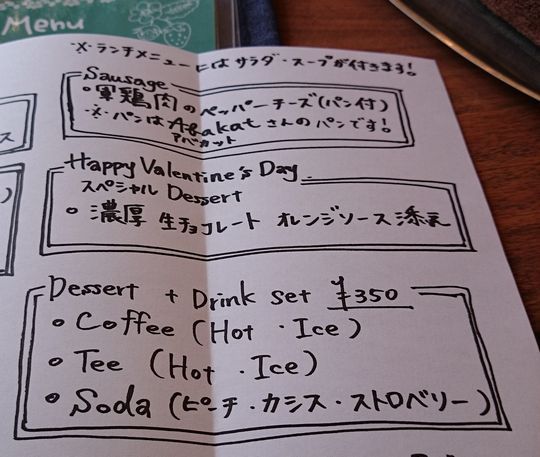 Menu
※ランチメニューにはサラダ・スープが付きます!
Sausage
・軍鶏肉のペッパーチーズ(パン付)
※パンはAbakatさんのパンです!
アバカット
Happy Valentine's Day
スペシャル Dessert
・濃厚 生チョコレート オレンジソース添え
Dessert + Drink set ¥350
・Coffee (Hot・Ice)
・Tee (Hot・Ice)
・Soda (ピーチ・カシス・ストロベリー)